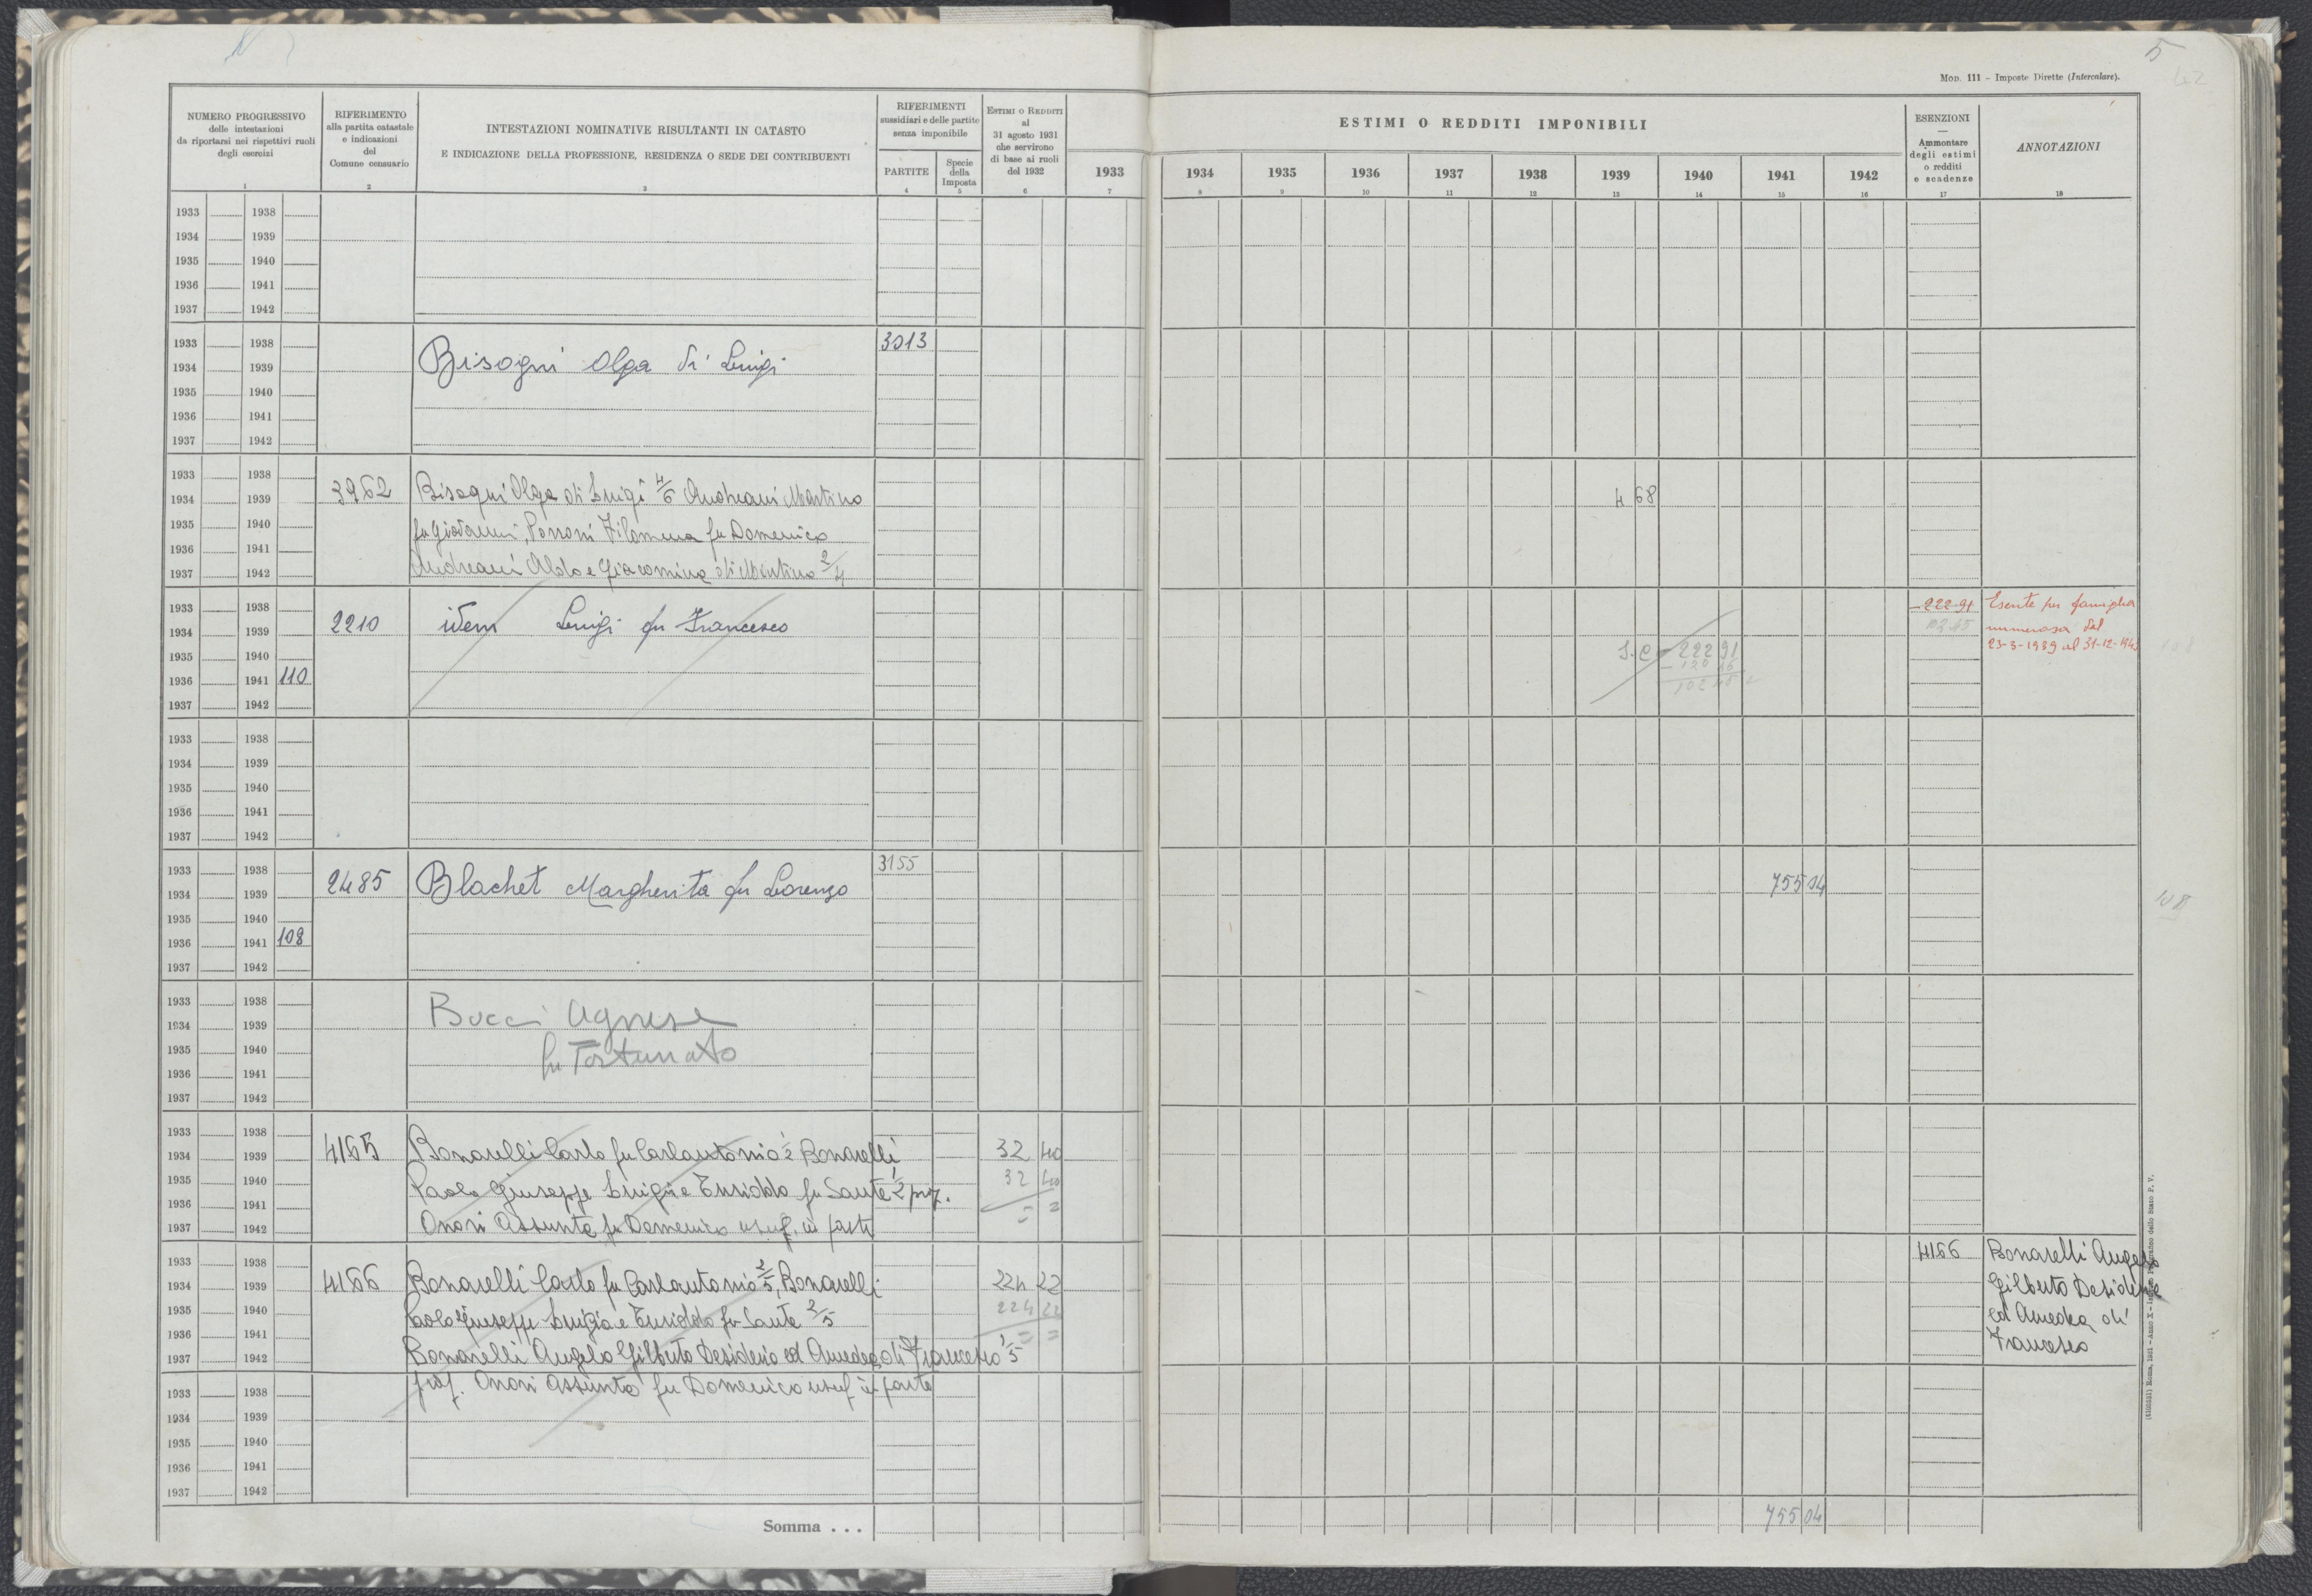 5
42
Mod. 111 - Imposte Dirette (Intercalare).
NUMERO PROGRESSIVO
delle intestazioni
da riportarsi nei rispettivi ruoli
degli esercizi
1
RIFERIMENTO
alla partita catastale
e indicazioni
del
Comune censuario
2
INTESTAZIONI NOMINATIVE RISULTANTI IN CATASTO
E INDICAZIONE DELLA PROFESSIONE, RESIDENZA O SEDE DEI CONTRIBUENTI
3
RIFERIMENTI
sussidiari e delle partite
senza imponibile
PARTITE
4
Specie
della
Imposta
5
ESTIMI O REDDITI
al
31 agosto 1931
che servirono
di base ai ruoli
del 1932
6
ESTIMI O REDDITI IMPONIBILI
1933 1934 1935 1936 1937 1938 1939 1940 1941 1942
7 8 9 10 11 12 13 14 15 16
ESENZIONI
Ammontare
degli estimi
o redditi
e scadenze
17
ANNOTAZIONI
18
1933 1938
1934 1939
1935 1940
1936 1941
1937 1942
1933 1938 3013
1934 1939 Bisogni Olga di Luigi
1935 1940
1936 1941
1937 1942
1933 1938
1934 1939 3962 Bisogni Olga di Luigi 4/6 Andreani Martino 4 68
1935 1940 fu Giovanni, Porroni Filomena fu Domenico
1936 1941
1937 1942 Andreani Aldo e Giacomina di Martino 2/4
1933 1938 222 91 Esente per famiglia
1934 1939 2210 idem Luigi fu Francesco 102 45 numerosa dal
1935 1940 s.e 222 91 23-3-1939 al 31-12-194
120 46
1936 1941 110 102 45
1937 1942
1933 1938
1934 1939
1935 1940
1936 1941
1937 1942
1933 1938 3155
1934 1939 2485 Blachet Margherita fu Lorenzo 755 04 108
1935 1940
1936 1941 108
1937 1942
1933 1938
1934 1939 Bucci Agnese
1935 1940 fu Fortunato
1936 1941
1937 1942
1933 1938
1934 1939 4165 Bonarelli Carlo fu Carlantonio 1/2 Bonarelli 32 40
1935 1940 Paolo Giuseppe Luigi e Ersiddo fu Sante 1/2 prop. 32 40
1936 1941 = =
1937 1942 Onori Assunta fu Domenico usuf. in parte
1933 1938 4166 Bonarelli Angelo
1934 1939 4166 Bonarelli Carlo fu Carlantonio 2/5, Bonarelli 224 22 Gilberto Desiderio
1935 1940 Paolo Giuseppe Luigia e Ersiddo fu Sante 2/5 224 22 ed Amedea di
1936 1941 = = Francesco
1937 1942 Bonarelli Angelo Gilberto Desiderio ed Amedea di Francesco 1/5
1933 1938 prop. Onori Assunta fu Domenico usuf in parte
1934 1939
1935 1940
1936 1941
1937 1942
Somma . . . 755 04